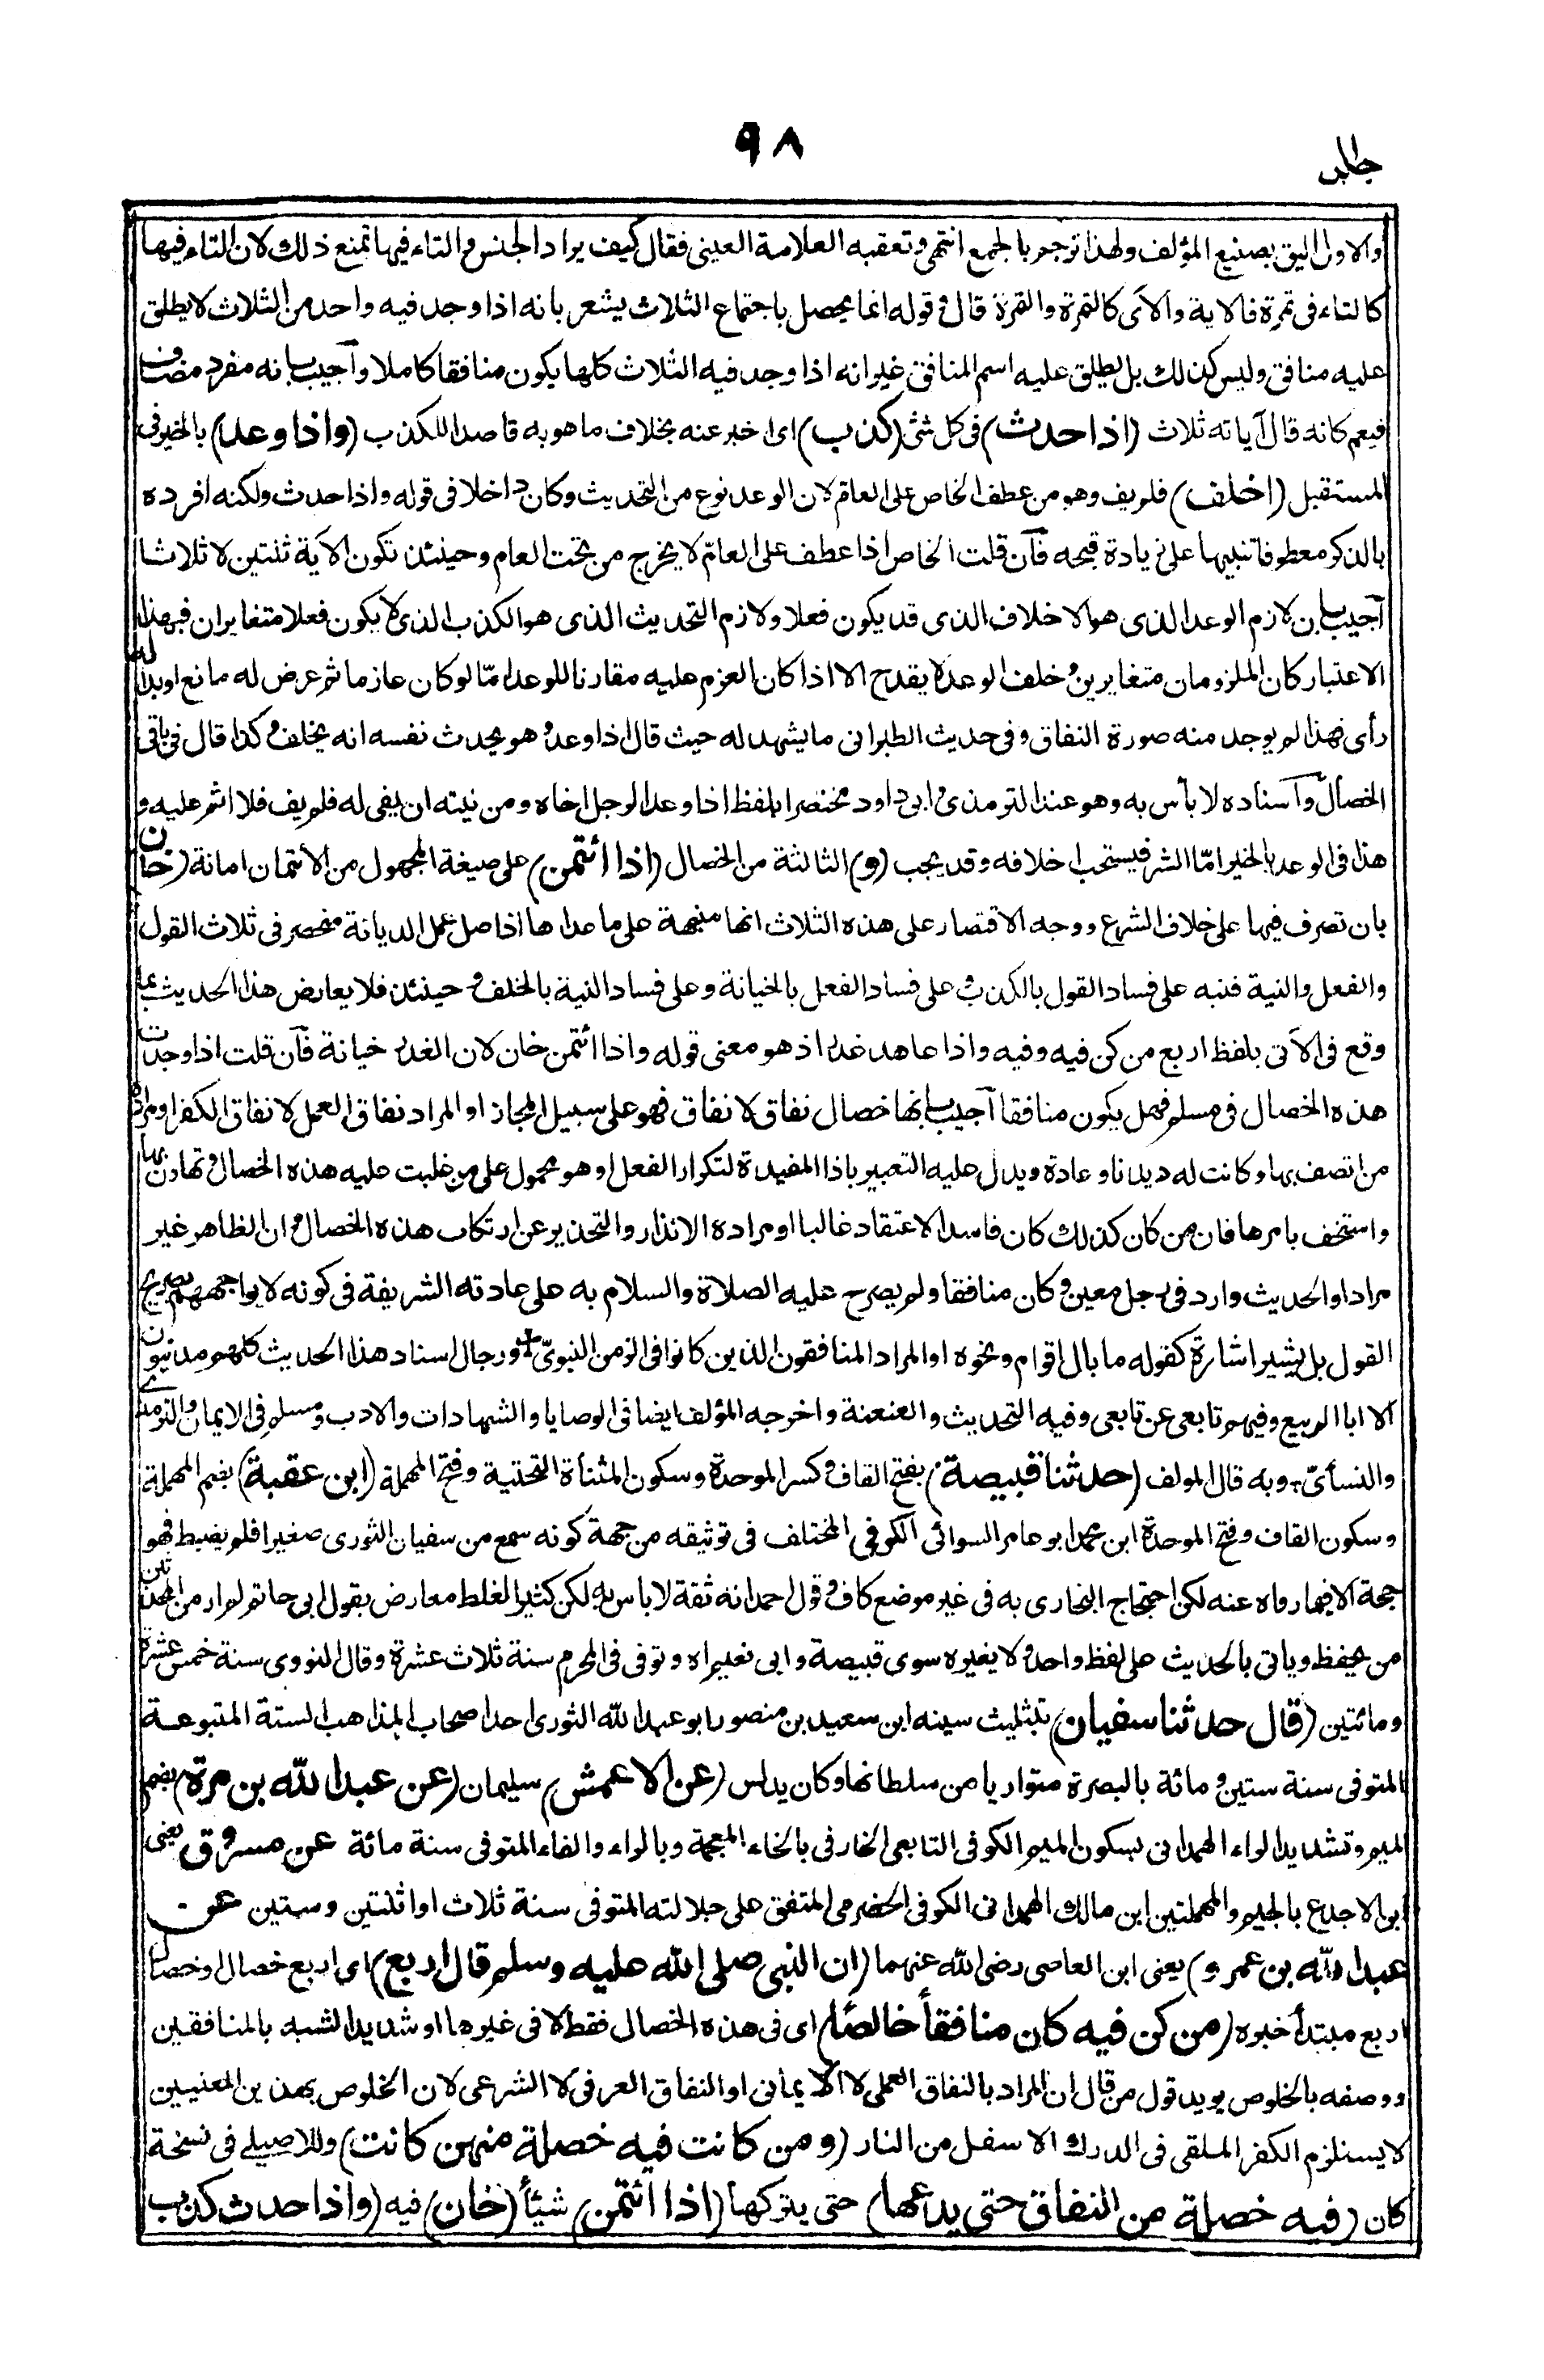 ٩٨
والاول اليق بصنيع المؤلف ولهذا ترجم بالجمع انتهى وتعقبه العلامة العينى فقال كيف يراد الجنس والتاء فيها تمنع ذلك لان التاء فيها
كالتاء فى تمرة فالاية والآى كالتمرة والتمر قال وقوله انما يحصل باجتماع الثلاث يشعر بانه اذا وجد فيه واحد من الثلاث لا يطلق
عليه منافق وليس كذلك بل يطلق عليه اسم المنافق غير انه اذا وجد فيه الثلاث كلها يكون منافقا كاملا وآجيب بانه مفرد مضاف
فيعم كانه قال آياته ثلاث (اذا حدث) فى كل شئ (كذب) اى اخبر عنه بخلاف ما هو به قاصدا للكذب (واذا وعد) بالخير فى
المستقبل (اخلف) فلم يف وهو من عطف الخاص على العام لان الوعد نوع من التحديث وكان داخلا فى قوله واذا حدث ولكنه افرده
بالذكر معطوفا تنبيها على زيادة قبحه فآن قلت الخاص اذا عطف على العام لا يخرج من تحت العام وحينئذ تكون الآية ثنتين لا ثلاثا
آجيب بان لازم الوعد الذى هو الاخلاف الذى قد يكون فعلا ولازم التحديث الذى هو الكذب الذى لا يكون فعلا متغايران فبهذا
الاعتبار كان الملزومان متغايرين وخلف الوعد لا يقدح الا اذا كان العزم عليه مقارنا للوعد امّا لو كان عازما ثم عرض له مانع او بدا له
رأى فهذا لم يوجد منه صورة النفاق وفى حديث الطبرانى ما يشهد له حيث قال اذا وعد وهو يحدث نفسه انه يخلف وكذا قال فى باقى
الخصال وآسناده لا بأس به وهو عند الترمذى وابى داود مختصرا بلفظ اذا وعد الرجل اخاه ومن نيته ان يفى له فلم يف فلا اثم عليه و
هذا فى الوعد بالخير امّا الشر فيستحب اخلافه وقد يجب (و) الثالثة من الخصال (اذا ائتمن) على صيغة المجهول من الائتمان امانة (خان
بان تصرف فيها على خلاف الشرع ووجه الاقتصار على هذه الثلاث انها منبهة على ما عداها اذ اصل عمل الديانة منحصر فى ثلاث القول
والفعل والنية فنبه على فساد القول بالكذب وعلى فساد الفعل بالخيانة وعلى فساد النية بالخلف وحينئذ فلا يعارض هذا الحديث بما
وقع فى الآتى بلفظ اربع من كن فيه وفيه واذا عاهد غدر اذ هو معنى قوله واذا ائتمن خان لان الغدر خيانة فآن قلت اذا وجدت
هذه الخصال فى مسلم فهل يكون منافقا آجيب بانها خصال نفاق لا نفاق فهو على سبيل المجاز او المراد نفاق العمل لا نفاق الكفر او مراده
من اتصف بها وكانت له ديدنا وعادة ويدل عليه التعبير باذا المفيدة لتكرار الفعل او هو محمول على من غلبت عليه هذه الخصال وتهاون بها
واستخف بامرها فان من كان كذلك كان فاسد الاعتقاد غالبا او مراده الانذار والتحذير عن ارتكاب هذه الخصال وان الظاهر غير
مراد او الحديث وارد فى رجل معين وكان منافقا ولم يصرح عليه الصلاة والسلام به على عادته الشريفة فى كونه لا يواجههم بصريح
القول بل يشير اشارة كقوله ما بال اقوام ونحوه او المراد المنافقون الذين كانوا فى الزمن النبوىّ + ورجال اسناد هذا الحديث كلهم مدنيون
الا ابا الربيع وفيهم تابعى عن تابعى وفيه التحديث والعنعنة واخرجه المؤلف ايضا فى الوصايا والشهادات والادب ومسلم فى الايمان والترمذى
والنسأىّ، وبه قال المولف (حدثنا قبيصة) بفتح القاف وكسر الموحدة وسكون المثناة التحتية وفتح المهملة (ابن عقبة) بضم المهملة
وسكون القاف وفتح الموحدة ابن محمد ابو عامر السوائى الكوفى المختلف فى توثيقه من جهة كونه سمع من سفيان الثورى صغيرا فلم يضبط فهو
حجة الا فيما رواه عنه لكن احتجاج البخارى به فى غير موضع كاف وقول احمد انه ثقة لا باس به لكن كثير الغلط معارض بقول ابى حاتم لم ار من المحدثين
من يحفظ وياتى بالحديث على لفظ واحد ولا يغيره سوى قبيصة وابى نعيم اه وتوفى فى المحرم سنة ثلاث عشرة وقال النووى سنة خمس عشرة
ومائتين (قال حدثنا سفيان) بتثليث سينه ابن سعيد بن منصور ابو عبد الله الثورى احد اصحاب المذاهب الستة المتبوعة
المتوفى سنة ستين ومائة بالبصرة متواريا من سلطانها وكان يدلس (عن الاعمش) سليمان (عن عبد الله بن مرة) بضم
الميم وتشديد الراء الهمدانى بسكون الميم الكوفى التابعى الخارفى بالخاء المعجمة وبالراء والفاء المتوفى سنة مائة عن مسروق يعنى
ابن الاجدع بالجيم والمهملتين ابن مالك الهمدانى الكوفى الحضرمى المتفق على جلالته المتوفى سنة ثلاث او اثنتين وستين عن
عبد الله بن عمرو) يعنى ابن العاصى رضى الله عنهما (ان النبى صلى الله عليه وسلم قال اربع) اى اربع خصال او خصال
اربع مبتدأ خبره (من كن فيه كان منافقأ خالصًا) اى فى هذه الخصال فقط لا فى غيرها او شديد الشبه بالمنافقين
ووصفه بالخلوص يويد قول من قال ان المراد بالنفاق العملى لا الايمانى او النفاق العرفى لا الشرعى لان الخلوص بهذين المعنيين
لا يستلزم الكفر الملقى فى الدرك الاسفل من النار (ومن كانت فيه خصلة منهن كانت) وللاصيلے فى نسخة
كان (فيه خصلة من النفاق حتى يدعها) حتى يتركها (اذا ائتمن) شيئأ (خان) فيه (واذا حدث كذب